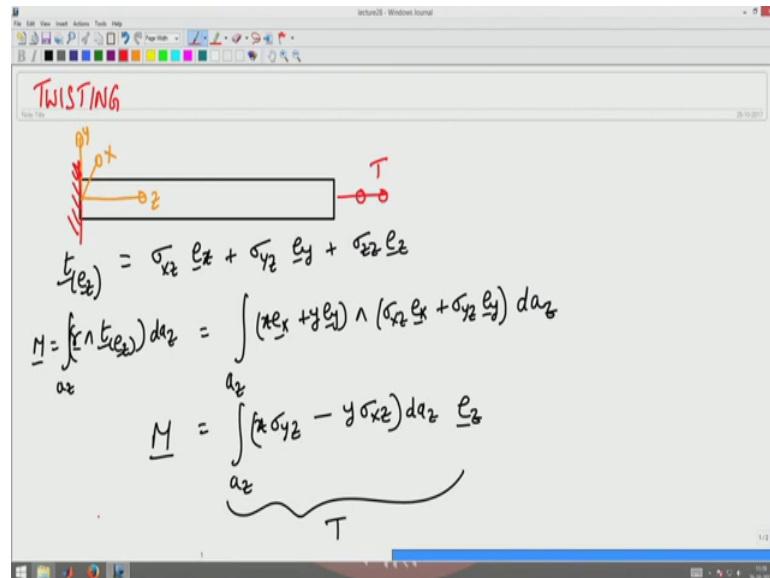 lecture28 - Windows Journal
File Edit View Insert Actions Tools Help
Page Width
B I
TWISTING
Note Title
y
x
z
T
t(e_z) = σ_xz e_x + σ_yz e_y + σ_zz e_z
M = ∫_{a_z} (r ∧ t(e_z)) da_z = ∫_{a_z} (x e_x + y e_y) ∧ (σ_xz e_x + σ_yz e_y) da_z
M = ∫_{a_z} (x σ_yz - y σ_xz) da_z e_z
T
1
1/2